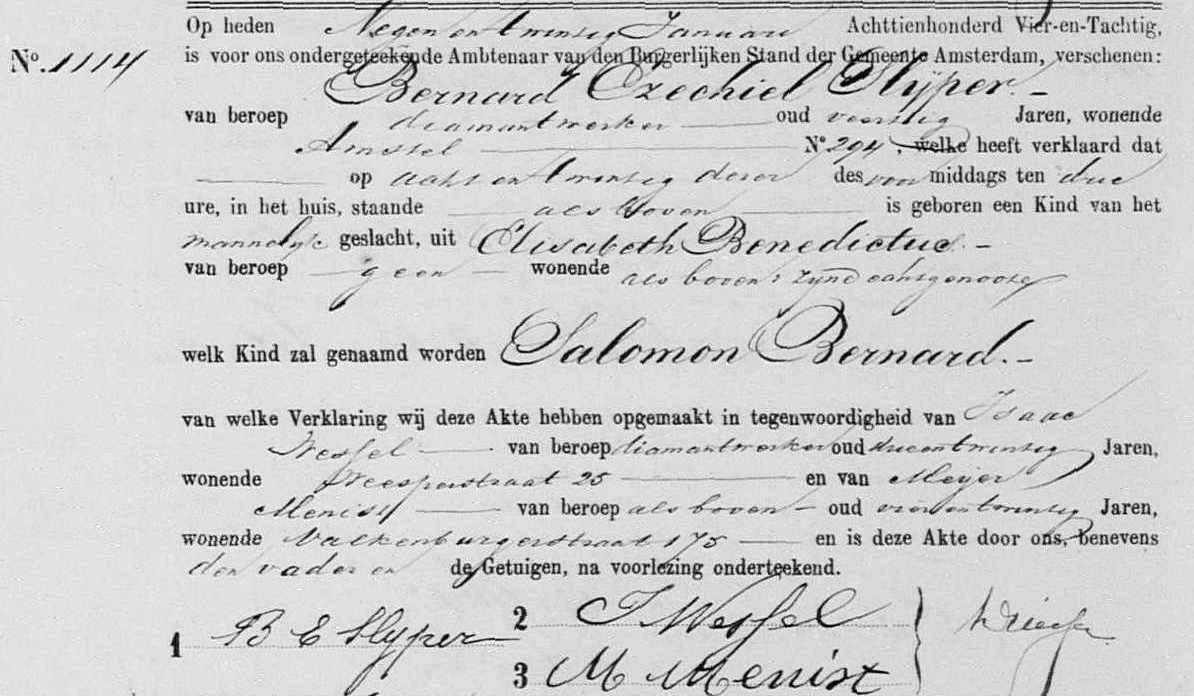 Op heden Negen en twintig Januari Achttienhonderd Vier-en-Tachtig,
No. 1114 is voor ons ondergeteekende Ambtenaar van den Burgerlijken Stand der Gemeente Amsterdam, verschenen:
Bernard Ezechiel Slijper. -
van beroep diamantwerker oud veertig Jaren, wonende
Amstel No. 294, welke heeft verklaard dat
op acht en twintig dezer des voor middags ten drie
ure, in het huis, staande als boven is geboren een Kind van het
mannelijk geslacht, uit Elisabeth Benedictus. -
van beroep geen wonende als boven, zijne echtgenoote
welk Kind zal genaamd worden Salomon Bernard. -
van welke Verklaring wij deze Akte hebben opgemaakt in tegenwoordigheid van Isaac
Wessel van beroep diamantwerker oud drieentwintig Jaren,
wonende Weesperstraat 25 en van Meijer
Menist van beroep als boven - oud vier en twintig Jaren,
wonende Valkenburgerstraat 175 en is deze Akte door ons, benevens
den vader en de Getuigen, na voorlezing onderteekend.
1 B E Slyper
2 I Wessel
3 M Menist